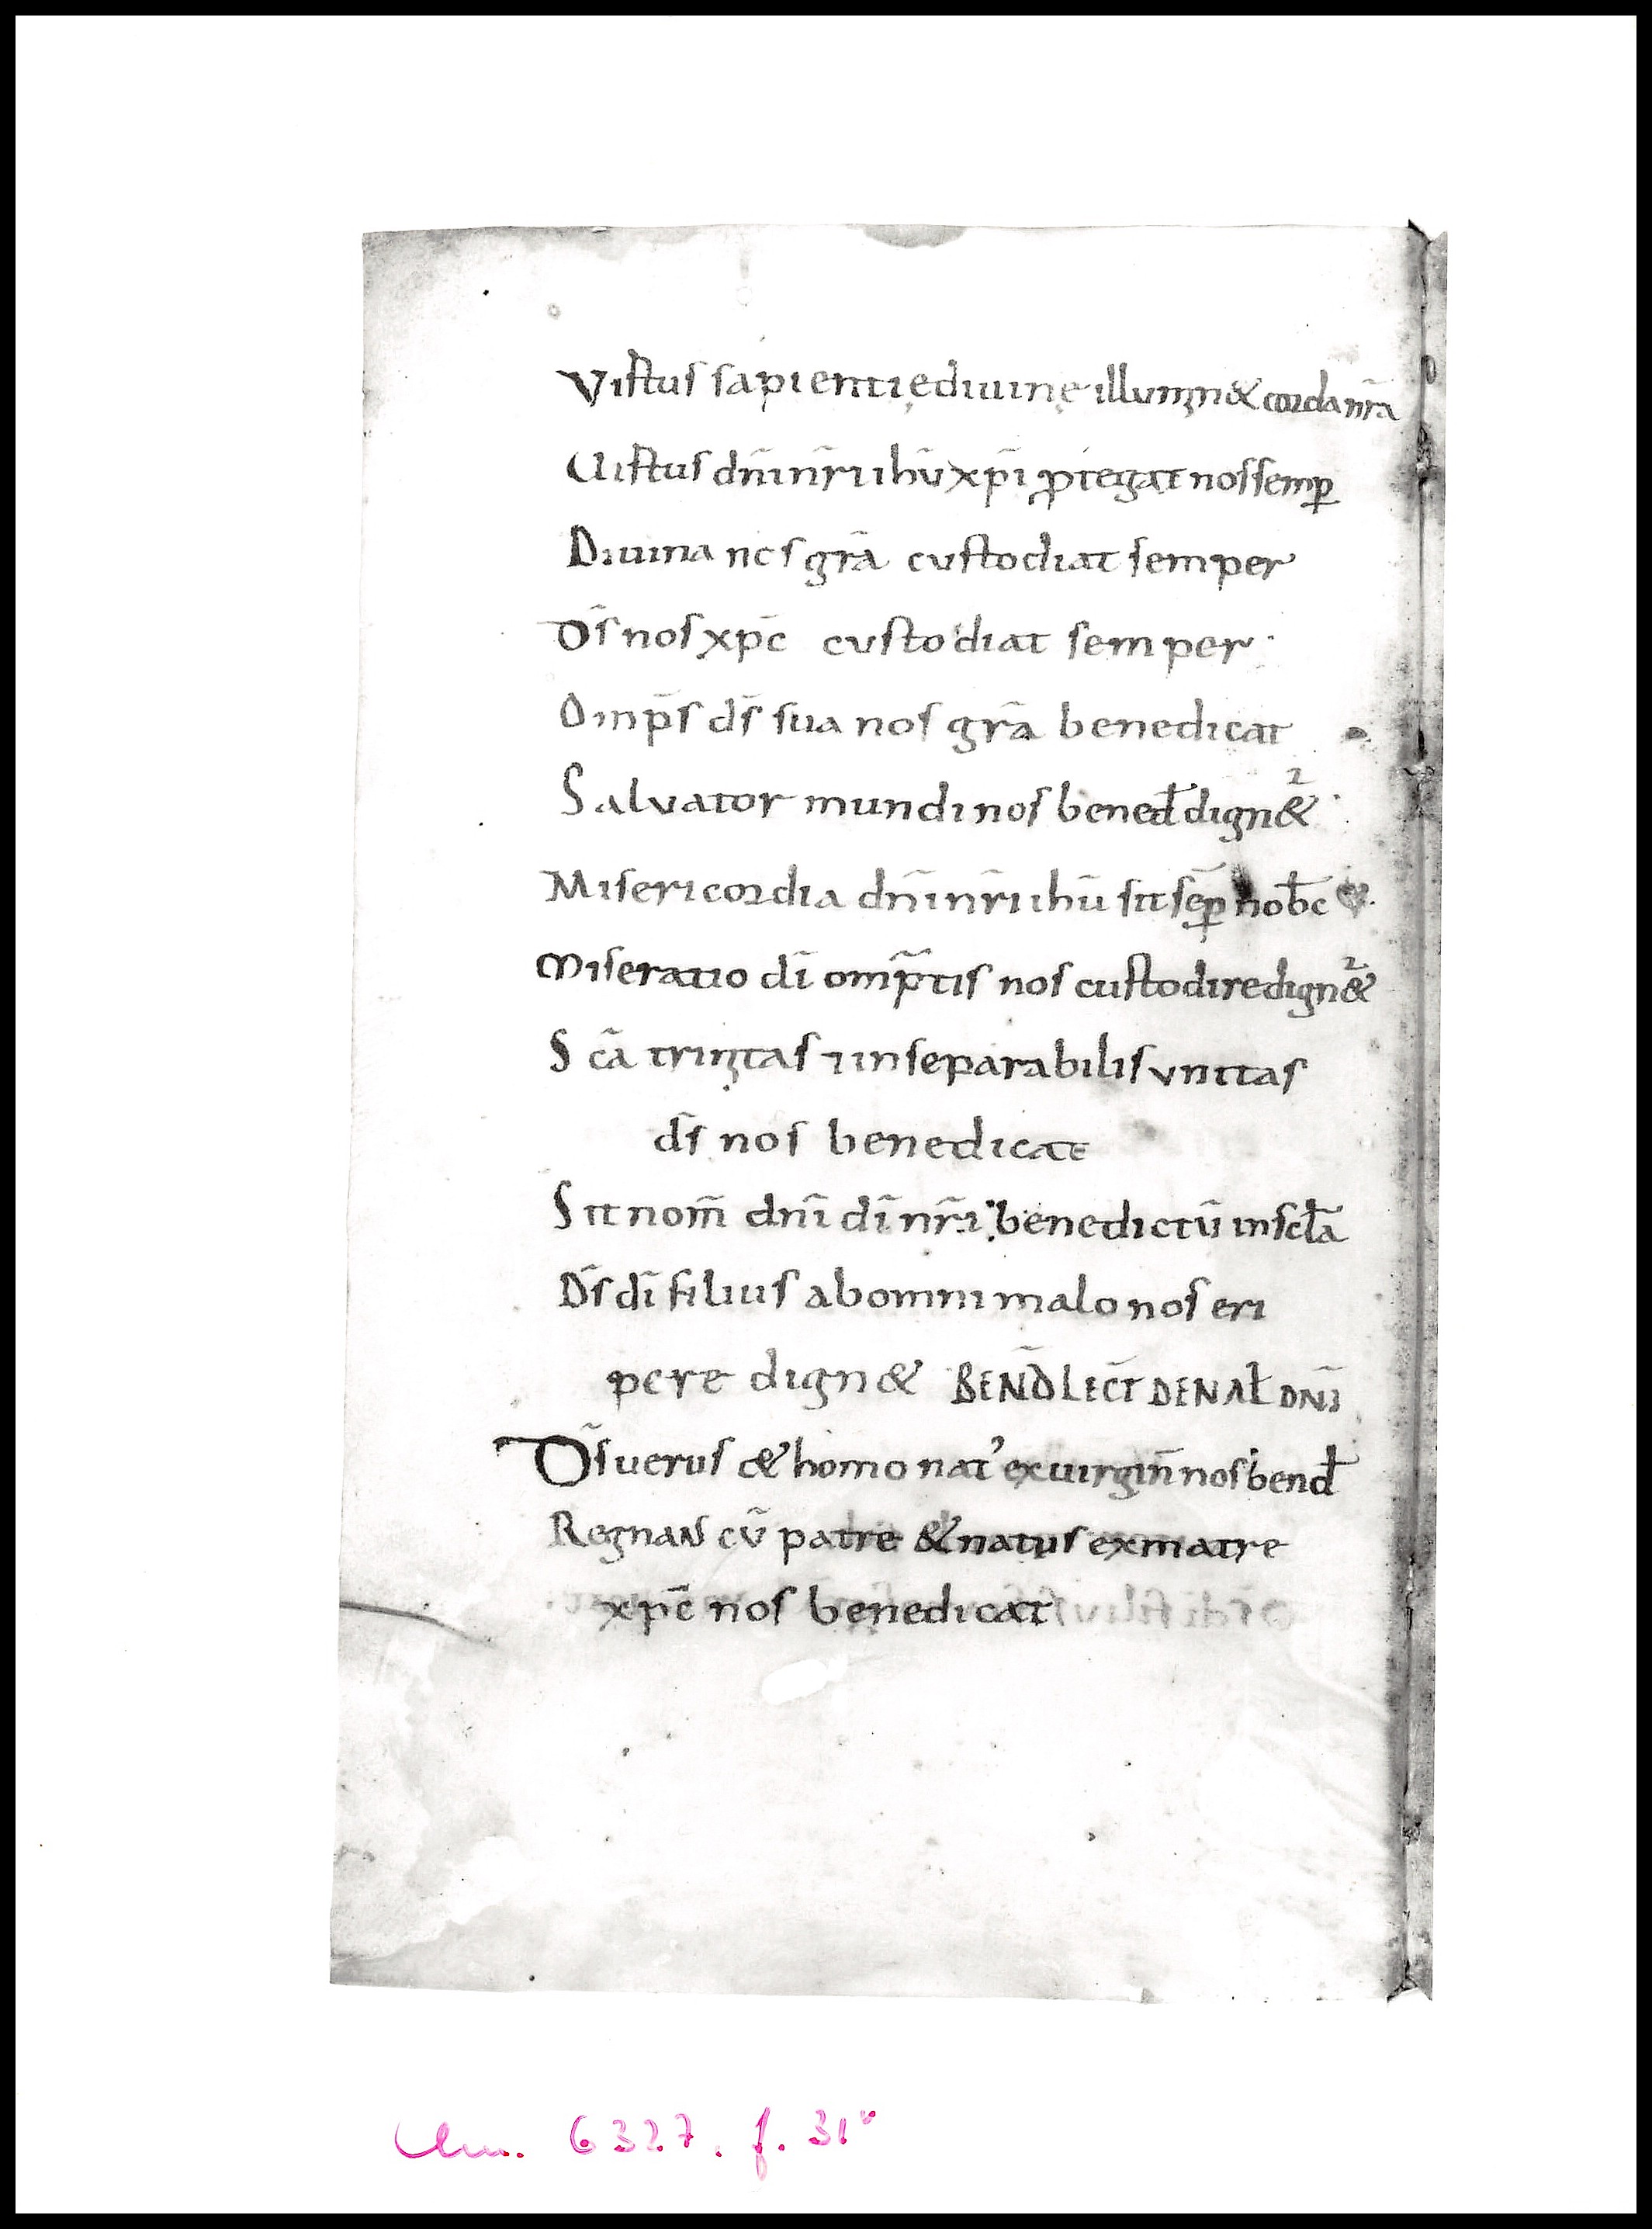 Virtus sapientię diuinę illumin& corda nr̄a
Uirtus dn̄i nr̄i ihū xp̄i ꝓtegat nos semꝑ
Diuina nos gr̄a custodiat semper
Ds̄ nos xp̄c custodiat semper
Omp̄s ds̄ sua nos gr̄a benedicat
Saluator mundi nos bened̄ dign&2
Misericordia dn̄i nr̄i ihū sit sēꝑ nob̄c
Miseratio dī omp̄tis nos custodire dign&2
Scā trinitas ⁊ inseparabilis vnitas
ds̄ nos benedicat
Sit nom̄ dn̄i dī nr̄i benedictū in scła
Ds̄ dī filius ab omni malo nos eri
pere dign& BEN̄D LEC̄T DE NAŁ DN̄I
Ds̄ uerus & homo nat᾽ ex uirgin̄ nos bend̄
Regnans cū patre & natus ex matre
xp̄c nos benedicat
Clm. 6327. f. 31v